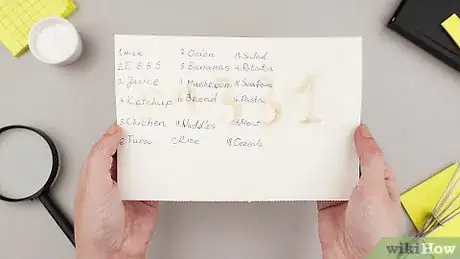 1. Milk
2. EGGS
3. Juice
4. Ketchup
5. Chicken
6. Tuna
7. Onion
8. Bananas
9. Mushroom
10. Bread
11. Noddles
12. Rice
13. Salad
14. Potatos
15. Sea food
16. Pasta
17. Meat
18. Cereals
wikiHow